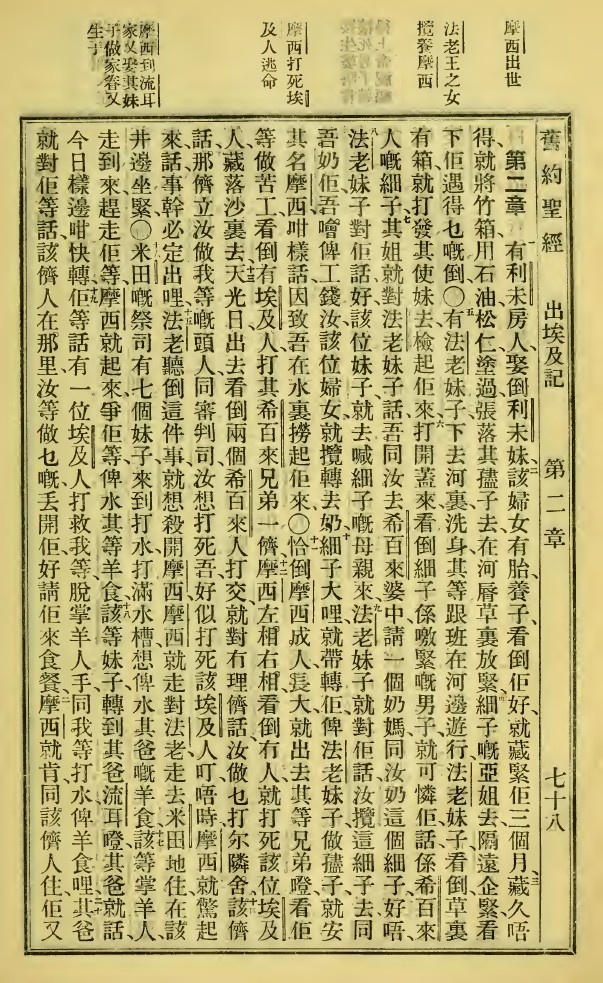 摩西出世
法老王之女
攬養摩西
摩西打死埃
及人逃命
摩西到流耳
家又娶其妹
子做家眷又
生子
舊約聖經 出埃及記 第二章 七十八
第二章 有利未房人娶倒利未妹該婦女有胎養子看倒佢好就藏緊佢三個月藏久唔
得就將竹箱用石油松仁塗過張落其孻子去在河脣草裏放緊細子嘅亞姐去隔遠企緊看
下佢遇得乜嘅倒〇有法老妹子下去河裏洗身其等跟班在河邊遊行法老妹子看倒草裏
有箱就打發其使妹去檢起佢來打開蓋來看倒細子係噭緊嘅男子就可憐佢話係希百來
人嘅細子其姐就對法老妹子話吾同汝去希百來婆中請一個奶媽同汝奶這個細子好唔
法老妹子對佢話好該位妹子就去喊細子嘅母親來法老妹子就對佢話汝攬這細子去同
吾奶佢吾噲俾工錢汝該位婦女就攬轉去奶細子大哩就帶轉佢俾法老妹子做孻子就安
其名摩西咁樣話因致吾在水裏撈起佢來〇恰倒摩西成人長大就出去其等兄弟嶝看佢
等做苦工看倒有埃及人打其希百來兄弟一儕摩西左相右相看倒冇人就打死該位埃及
人藏落沙裏去天光日出去看倒兩個希百來人打交就對冇理儕話汝做乜打尔隣舍該儕
話那儕立汝做我等嘅頭人同審判司汝想打死吾好似打死該埃及人叮唔時摩西就驚起
來話事幹必定出哩法老聽倒這件事就想殺開摩西摩西就走對法老走去米田地住在該
井邊坐緊〇米田嘅祭司有七個妹子來到打水打滿水槽想俾水其爸嘅羊食該等掌羊人
走到來趕走佢等摩西就起來爭佢等俾水其等羊食該等妹子轉到其爸流耳嶝其爸就話
今日樣邊咁快轉佢等話有一位埃及人打救我等脫掌羊人手同我等打水俾羊食哩其爸
就對佢等話該儕人在那里汝等做乜嘅丟開佢好請佢來食餐摩西就肯同該儕人住佢又